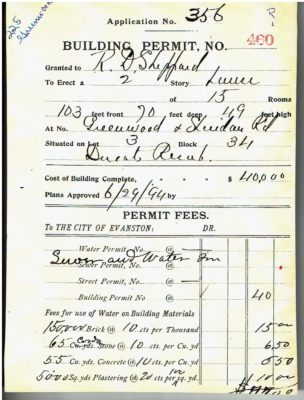 225
Greenwood
Application No. 356
R
BUILDING PERMIT, NO. 460
Granted to R. D. Sheppard
To Erect a 2 Story
of 15 Rooms
103 feet front 70 feet deep 49 feet high
At No. Greenwood &
Situated on Lot 3 Block 34
Cost of Building Complete, $ 40,000
Plans Approved 6/29/94 by
PERMIT FEES.
TO THE CITY OF EVANSTON: DR.
Water Permit, No. @
Sewer and Water
Sewer Permit, No. @
Street Permit, No. @
Building Permit No @ 40
Fees for use of Water on Building Materials
150000 Brick @ 10 cts per Thousand 15 00
65 Cu. yds. Stone @ 10 cts per Cu. yd 6 50
55 Cu. yds. Concrete @ 10 cts per Cu. yd 5 50
5000 Sq. yds Plastering @ 20 cts per sq. yd. 10 00